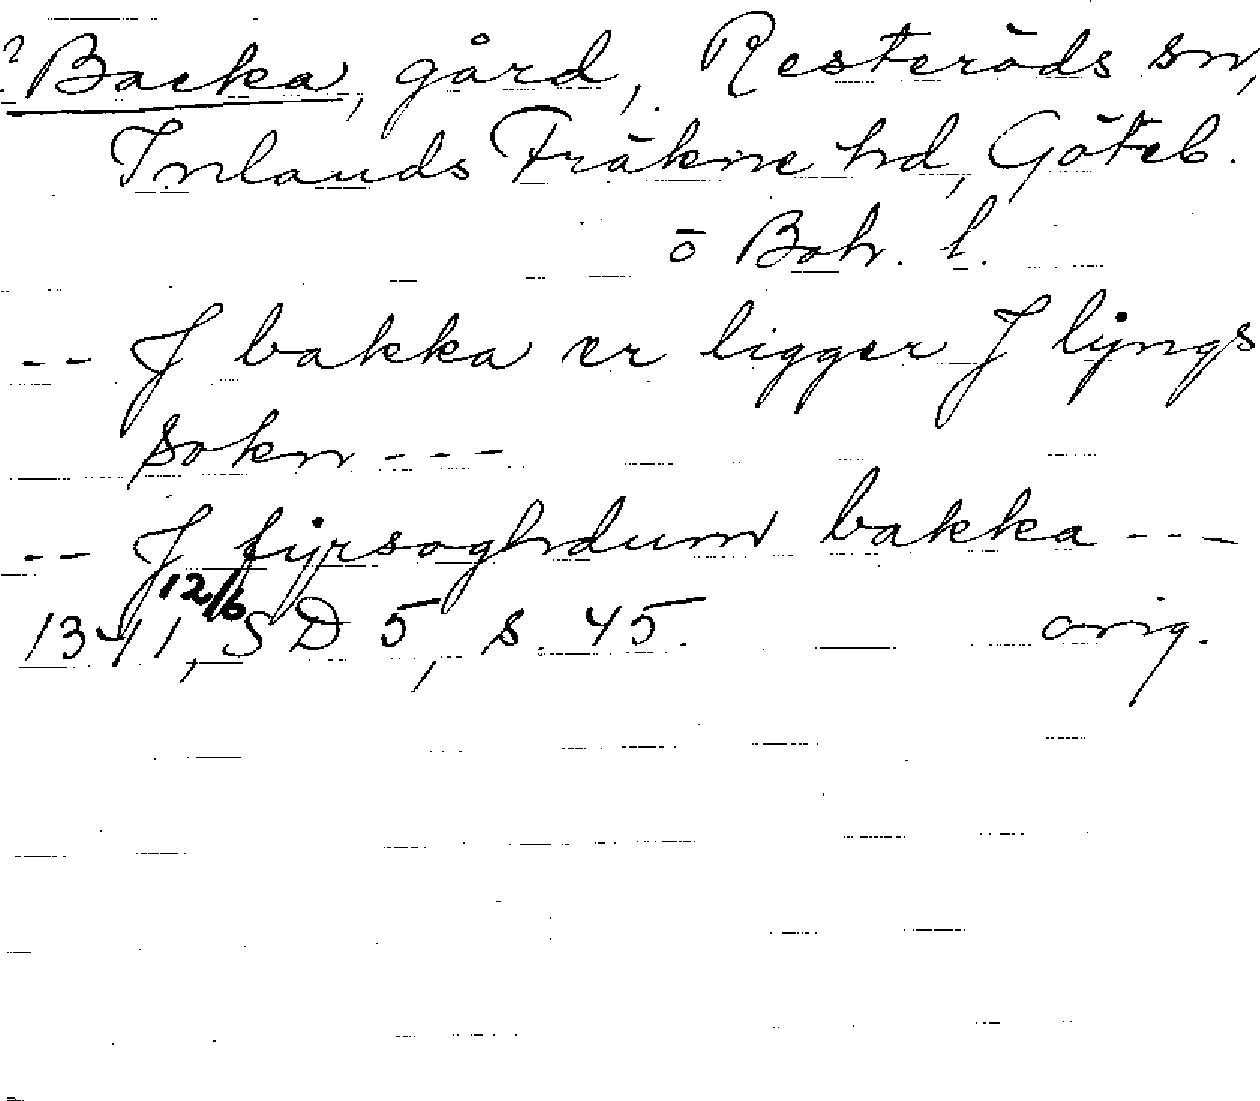 ? Backa, gård, Resteröds sn,
Inlands Fräkne hd, Göteb.
o Boh. l.
-- J bakka er ligger J lÿngs
sokn ---
-- J fyrsoghdum bakka ---
12/6
1341, SD 5, s. 45. orig.